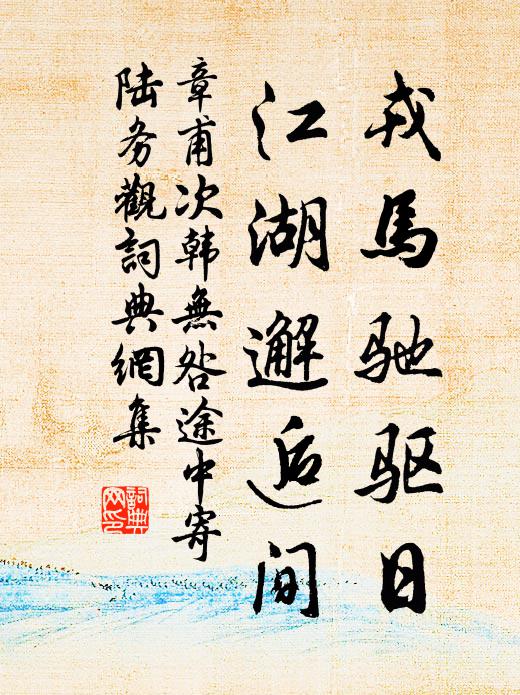 戎馬驰驱日
江湖邂逅间
章甫次韩無咎途中寄
陆务觀詞典網集
詞典
网印